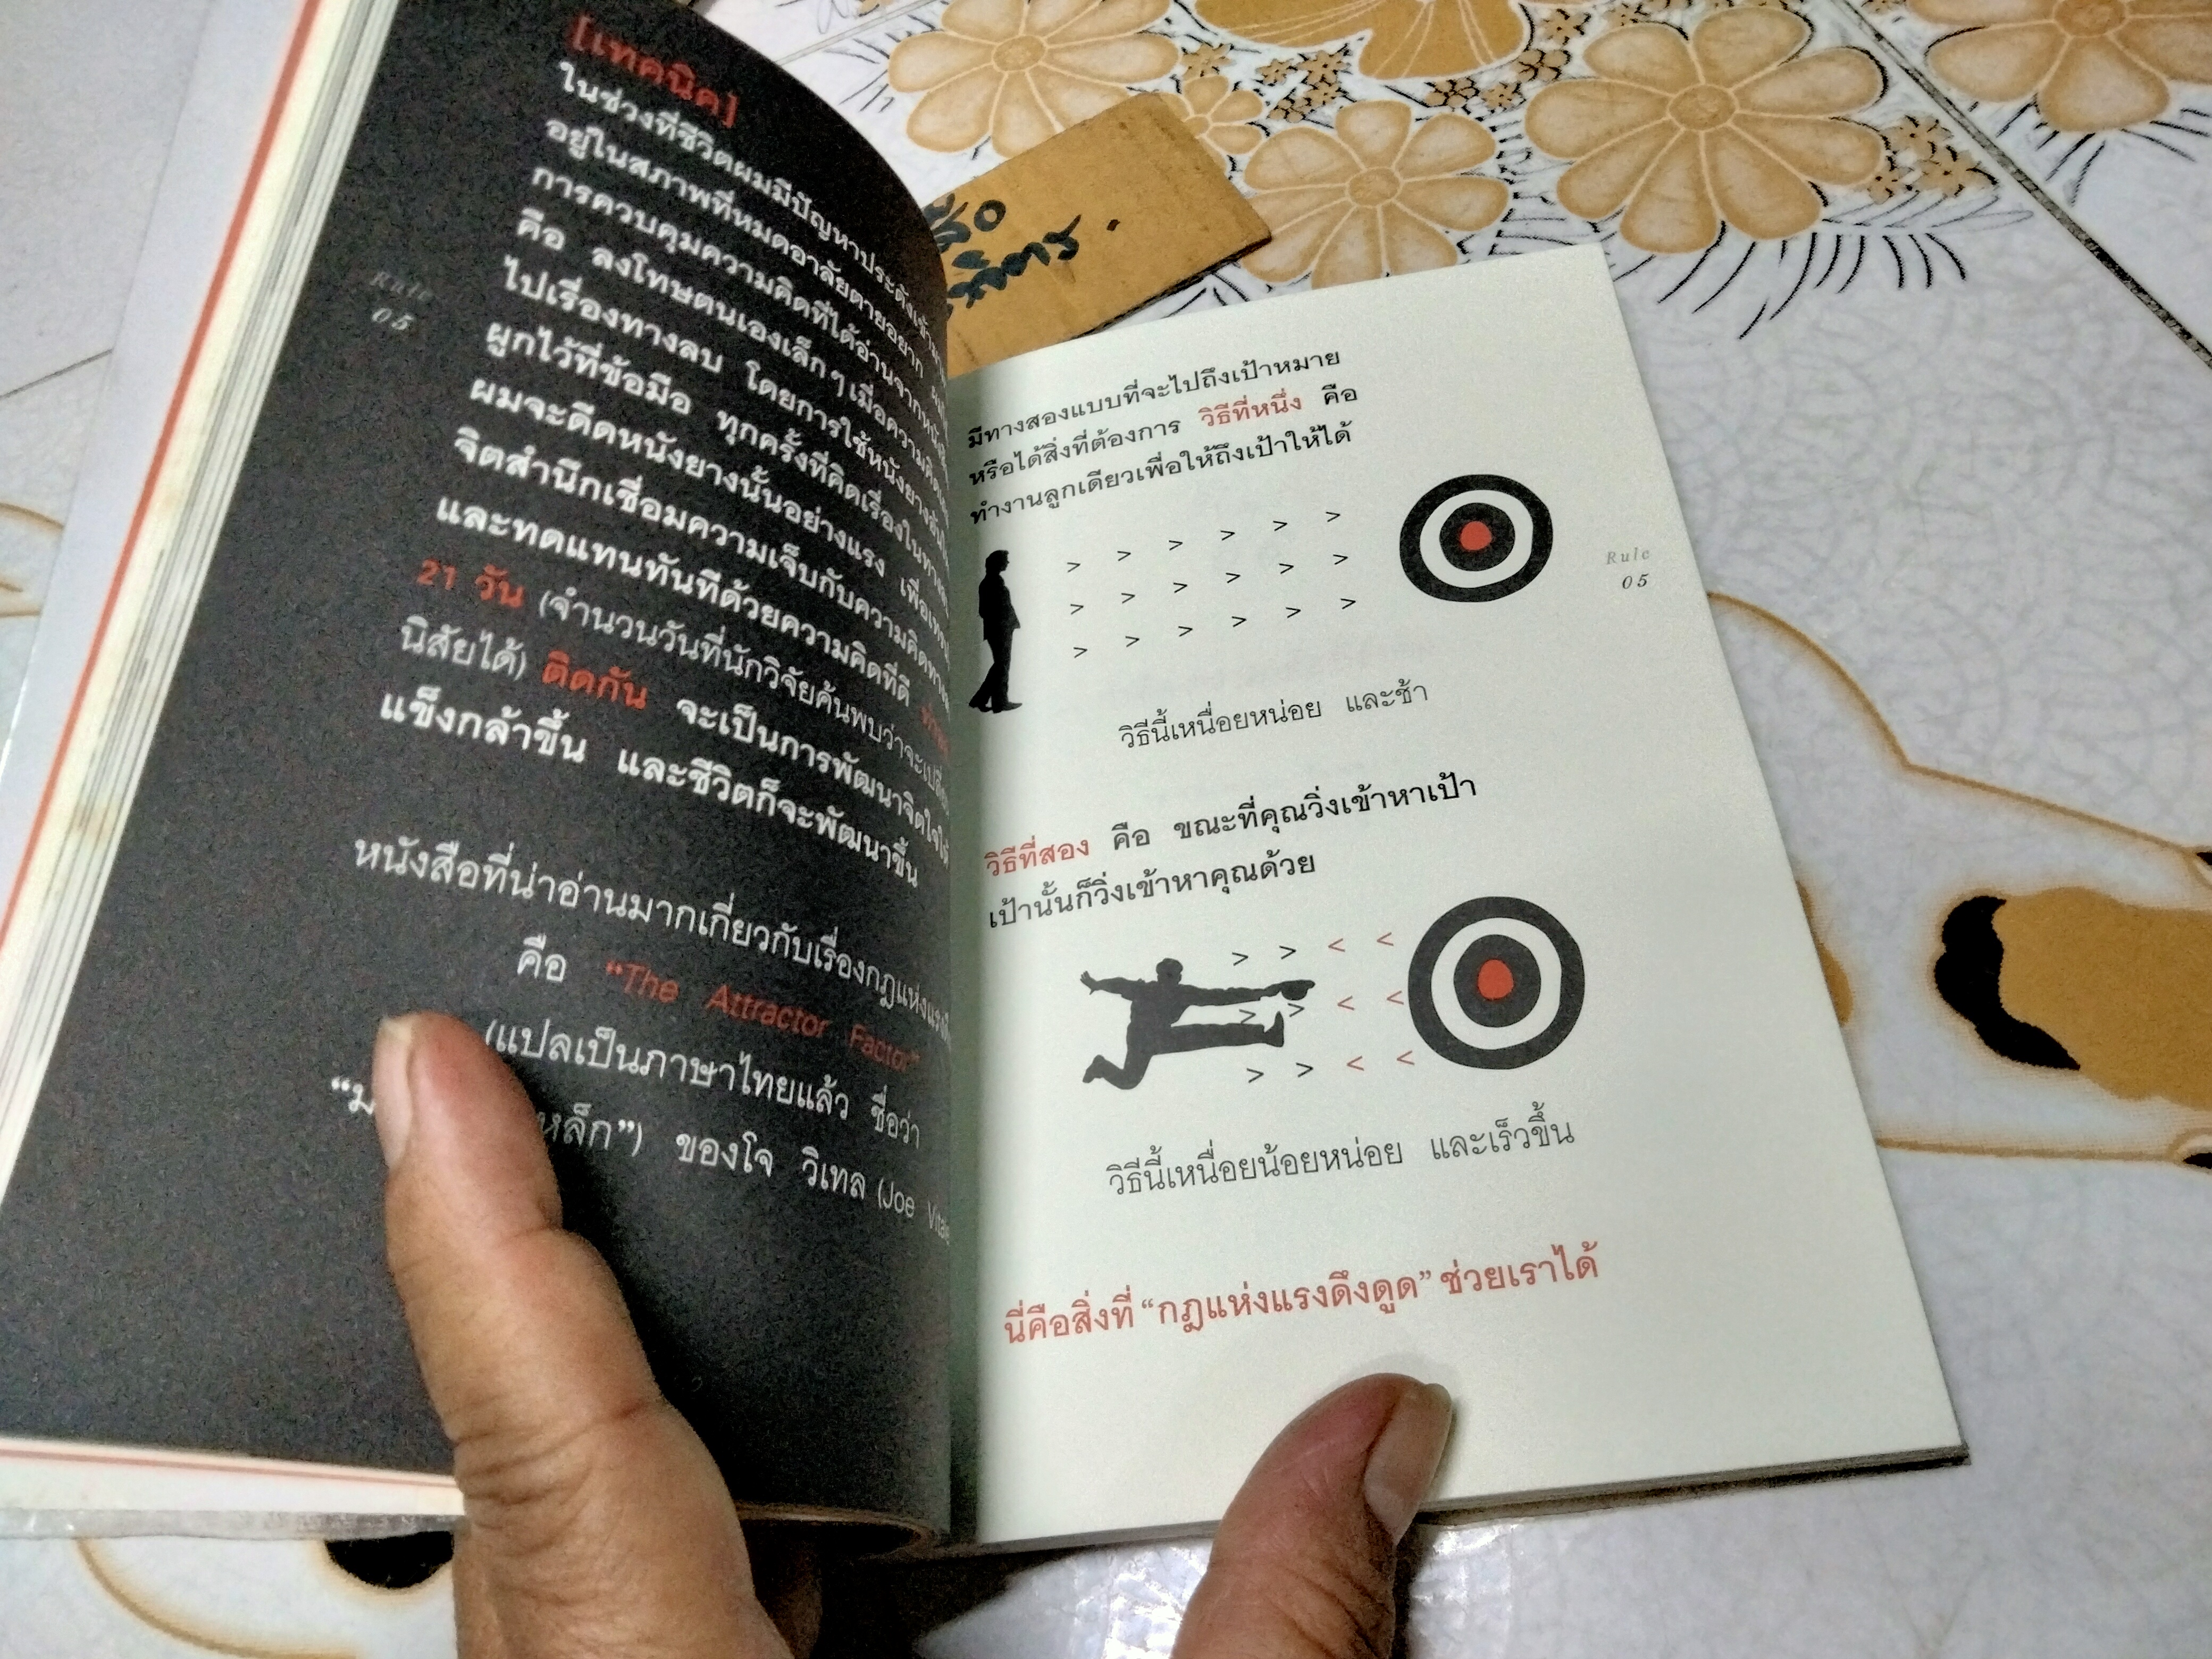 [เทคนิค]
ในช่วงที่ชีวิตผมมีปัญหาประดังเข้ามา
อยู่ในสภาพที่หมดอาลัยตายอยาก
การควบคุมความคิดที่ได้อ่านจากหนังสือ
คือ ลงโทษตนเองเล็กๆ เมื่อความคิด
ไปเรื่องทางลบ โดยการใช้หนังยาง
ผูกไว้ที่ข้อมือ ทุกครั้งที่คิดเรื่องในทาง
ผมจะดีดหนังยางนั้นอย่างแรง เพื่อ
จิตสำนึกเชื่อมความเจ็บกับความคิด
และทดแทนทันทีด้วยความคิดที่ดี
21 วัน (จำนวนวันที่นักวิจัยค้นพบว่าจะ
นิสัยได้) ติดกัน จะเป็นการพัฒนาจิตใจให้
แข็งกล้าขึ้น และชีวิตก็จะพัฒนาขึ้น
หนังสือที่น่าอ่านมากเกี่ยวกับเรื่องกฎแห่ง
คือ “The Attractor Factor”
(แปลเป็นภาษาไทยแล้ว ชื่อว่า
หล็ก”) ของโจ วิเทล (Joe Vitale
Rule
05
มีทางสองแบบที่จะไปถึงเป้าหมาย
หรือได้สิ่งที่ต้องการ วิธีที่หนึ่ง คือ
ทำงานลูกเดียวเพื่อให้ถึงเป้าให้ได้
> > > > > >
> > > > > >
> > > > > >
วิธีนี้เหนื่อยหน่อย และช้า
วิธีที่สอง คือ ขณะที่คุณวิ่งเข้าหาเป้า
เป้านั้นก็วิ่งเข้าหาคุณด้วย
> > < <
> > < <
> > < <
วิธีนี้เหนื่อยน้อยหน่อย และเร็วขึ้น
นี่คือสิ่งที่ “กฎแห่งแรงดึงดูด” ช่วยเราได้
Rule
05